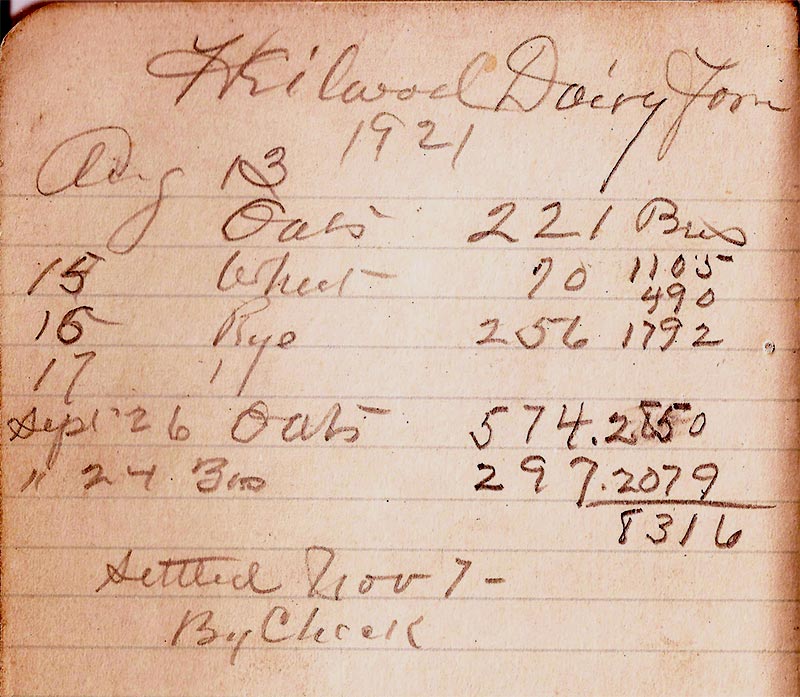 Kilwood Dairy Farm
1921
Aug 13
Oats 221 Bus
1105
15 Wheat 70
490
16 Rye 256 1792
17 "
Sept 26 Oats 574. 2850
" 24 297. 2079
8316
Settled Nov 7 -
By Check